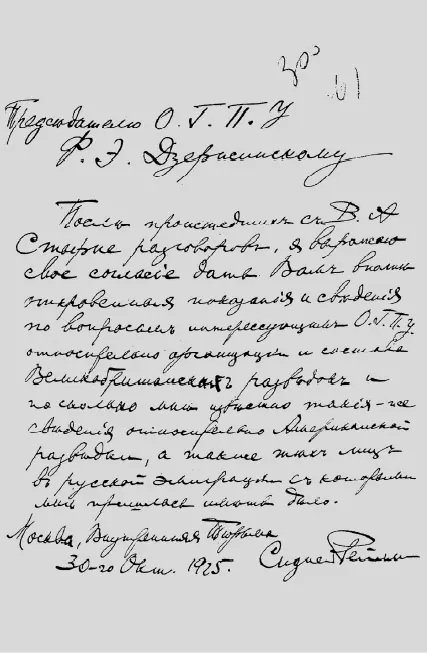 Председателю О. Г. П. У
Ф. Э. Дзержинскому
После происшедших с В. А
Стырне разговоров, я выражаю
свое согласіе дать Вамъ вполне
откровенныя показанія и сведенія
по вопросамъ интересующимъ О.Г.П.У
относительно организаціи и состава
Великобританскихъ разведокъ и
по сколько мне известно такія-же
сведенія относительно Американской
разведки, а также техъ лицъ
въ русской эмиграціи съ которыми
мне пришлось иметь дело.
Москва, Внутренняя Тюрьма
30-го Окт. 1925. Сидней Рейлли